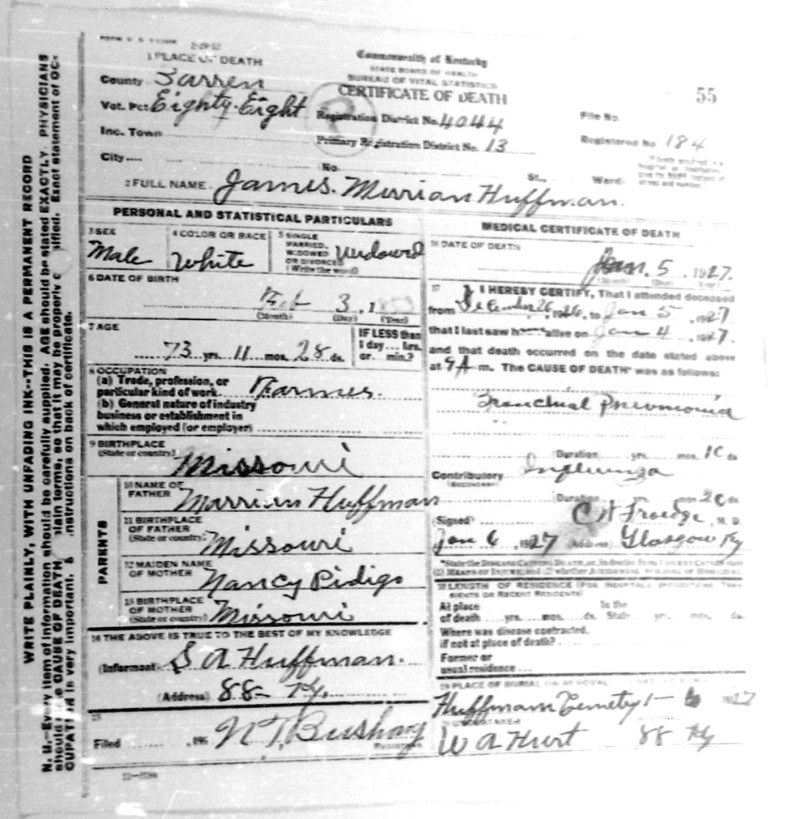 2-29-12
Commonwealth of Kentucky
STATE BOARD OF HEALTH
BUREAU OF VITAL STATISTICS
CERTIFICATE OF DEATH
55
1 PLACE OF DEATH
County Barren
Vot. Pct Eighty-Eight
Registration District No. 4044
File No.
Inc. Town
Primary Registration District No. 13
Registered No 184
City
No.
St.,
Ward
2 FULL NAME. James. Mirrian Huffman.
PERSONAL AND STATISTICAL PARTICULARS
3 SEX Male
4 COLOR OR RACE White
5 SINGLE MARRIED, WIDOWED OR DIVORCED (Write the word) Widowed
6 DATE OF BIRTH
Feb 3, 1
(Month) (Day) (Year)
7 AGE
73 yrs. 11 mos. 28 ds.
IF LESS than 1 day... hrs. or... min.?
8 OCCUPATION
(a) Trade, profession, or
particular kind of work Farmer.
(b) General nature of industry
business or establishment in
which employed (or employer)
9 BIRTHPLACE
(State or country) Missouri
PARENTS
10 NAME OF
FATHER Marrian Huffman
11 BIRTHPLACE
OF FATHER
(State or country) Missouri
12 MAIDEN NAME
OF MOTHER Nancy Pidigo
13 BIRTHPLACE
OF MOTHER
(State or country) Missouri
14 THE ABOVE IS TRUE TO THE BEST OF MY KNOWLEDGE
(Informant S A Huffman.
(Address) 88- Ky.
15
Filed , 192 N T. Bushong
REGISTRAR
MEDICAL CERTIFICATE OF DEATH
16 DATE OF DEATH
Jan. 5, 1927.
(Month) (Day) (Year)
17 I HEREBY CERTIFY, That I attended deceased
from December 26 1926, to Jan 5, 1927
that I last saw h alive on Jan 4 1927.
and that death occurred on the date stated above
at 9 A m. The CAUSE OF DEATH* was as follows:
Bronchial Pneumonia
(Duration) yrs. mos 10 ds
Contributory Influenza
(SECONDARY)
(Duration) yrs. mos 20 ds
(Signed) C W Froedge, M. D.
Jan 6, 1927 (Address) Glasgow Ky
*State the DISEASE CAUSING DEATH, or, in deaths from VIOLENT CAUSES state
(1) MEANS OF INJURY, and (2) whether
18 LENGTH OF RESIDENCE (FOR HOSPITALS, INSTITUTIONS, TRANSIENTS OR RECENT RESIDENTS)
At place of death yrs. mos. ds. In the State yrs. mos. ds.
Where was disease contracted,
if not at place of death?
Former or
usual residence
19 PLACE OF BURIAL OR REMOVAL
Huffman Cemetery 1- 6 1927
UNDERTAKER
W A Hurt 88 Ky
N. B.—Every item of information should be carefully supplied. AGE should be stated EXACTLY. PHYSICIANS
should CAUSE OF DEATH plain terms, so that it may be properly classified. Exact statement of OC-
CUPATION is very important. instructions on back of certificate.
WRITE PLAINLY, WITH UNFADING INK--THIS IS A PERMANENT RECORD